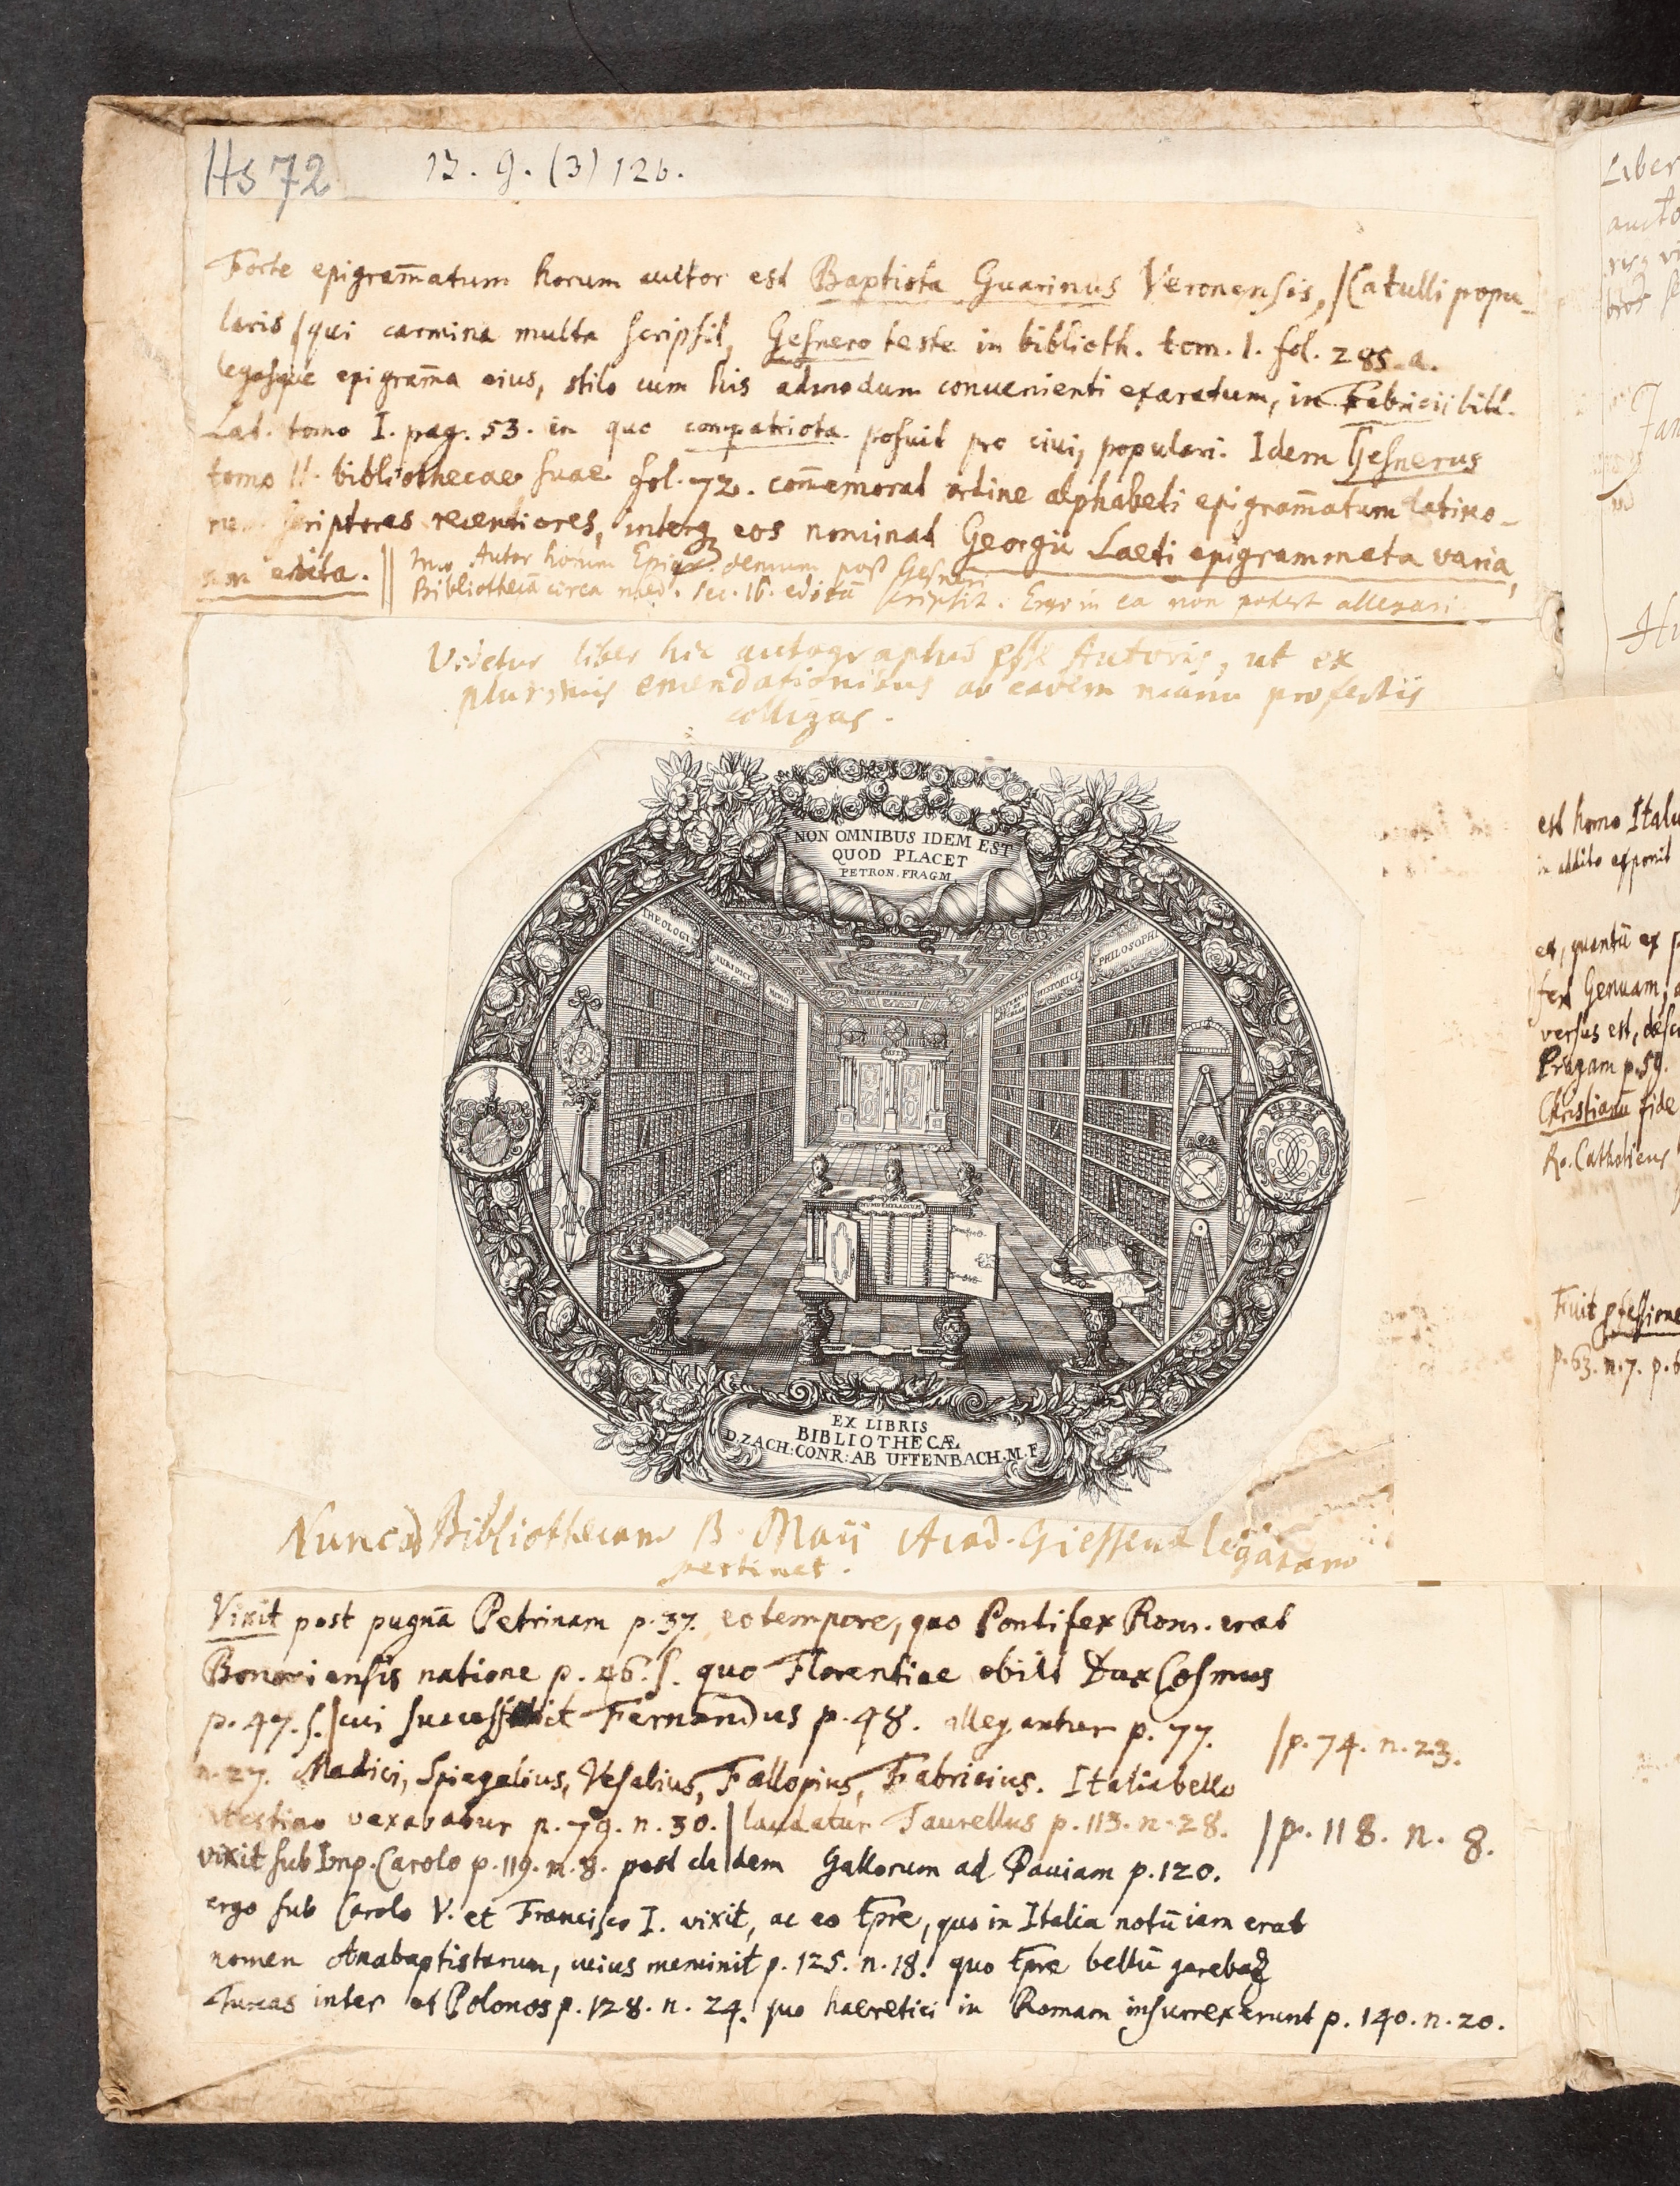 Hs 72 17. g. (3) 126.
Forte epigram̄atum horum auctor est Baptista Guarinus Veronensis, |Catulli popu-
laris |qui carmina multa scripsit, Gesnero teste in biblioth. tom. I. fol. 285. a.
legesque epigram̄a eius, stilo cum his admodum conuenienti exaratum, in Fabricii bibl.
Lat. tomo I. pag. 53. in quo compatriota posuit pro ciui, populari. Idem Gesnerus
tomo II. bibliothecae suae fol. 72. com̄emorat ordine alphabeti epigram̄atum latino-
rum scriptores recentiores, interq eos nominat Georgii Laeti epigrammata varia,
non edita. || Imo Autor horum Epigr. demum post Gesneri
Bibliothecā circa med. sec. 16. editā scripsit. Ergo in ea non potest allegari
Videtur liber hic autographus esse Autoris, ut ex
plurimis emendationibus ab eadem manu profectis
colligas.
NON OMNIBUS IDEM EST
QUOD PLACET
PETRON. FRAGM.
THEOLOGI
IURIDICI
MEDICI
HISTORICI
PHILOSOPHI
NUMOPHYLACIUM
EX LIBRIS
BIBLIOTHECÆ
D. ZACH: CONR: AB UFFENBACH. M. F.
Nunc ad Bibliothecam B. Maii Acad. Giessenae legatam
pertinet.
Vixit post pugnā Petrinam p. 37. eo tempore, quo Pontifex Rom. erat
Bononiensis natione p. 46. s. quo Florentiae obiit Dux Cosmus
p. 47. s. |cui successit Fernandus p. 48. allegantur p. 77. |p. 74. n. 23.
n. 27. Medici, Spiegelius, Vesalius, Fallopius, Fabricius. Italia bello
intestino vexabatur p. 79. n. 30. |laudatur Taurellus p. 113. n. 28. |p. 118. n. 8.
vixit sub Imp. Carolo p. 119. n. 8. post cladem Gallorum ad Pauiam p. 120.
ergo sub Carolo V. et Francisco I. vixit, ac eo tp̄re, quo in Italia notū iam erat
nomen Anabaptistarum, cuius meminit p. 125. n. 18. quo tp̄re bellū gereba
Turcas inter et Polonos p. 128. n. 24. quo haeretici in Romam insurrexerunt p. 140. n. 20.
Liber
est homo Italu
in addito exponit
et, quantū ex
fex Genuam,
versus est,
Pragam p. 59.
Christianū fide
Ro. Catholicus
Fuit
p. 63. n. 7. p. 6